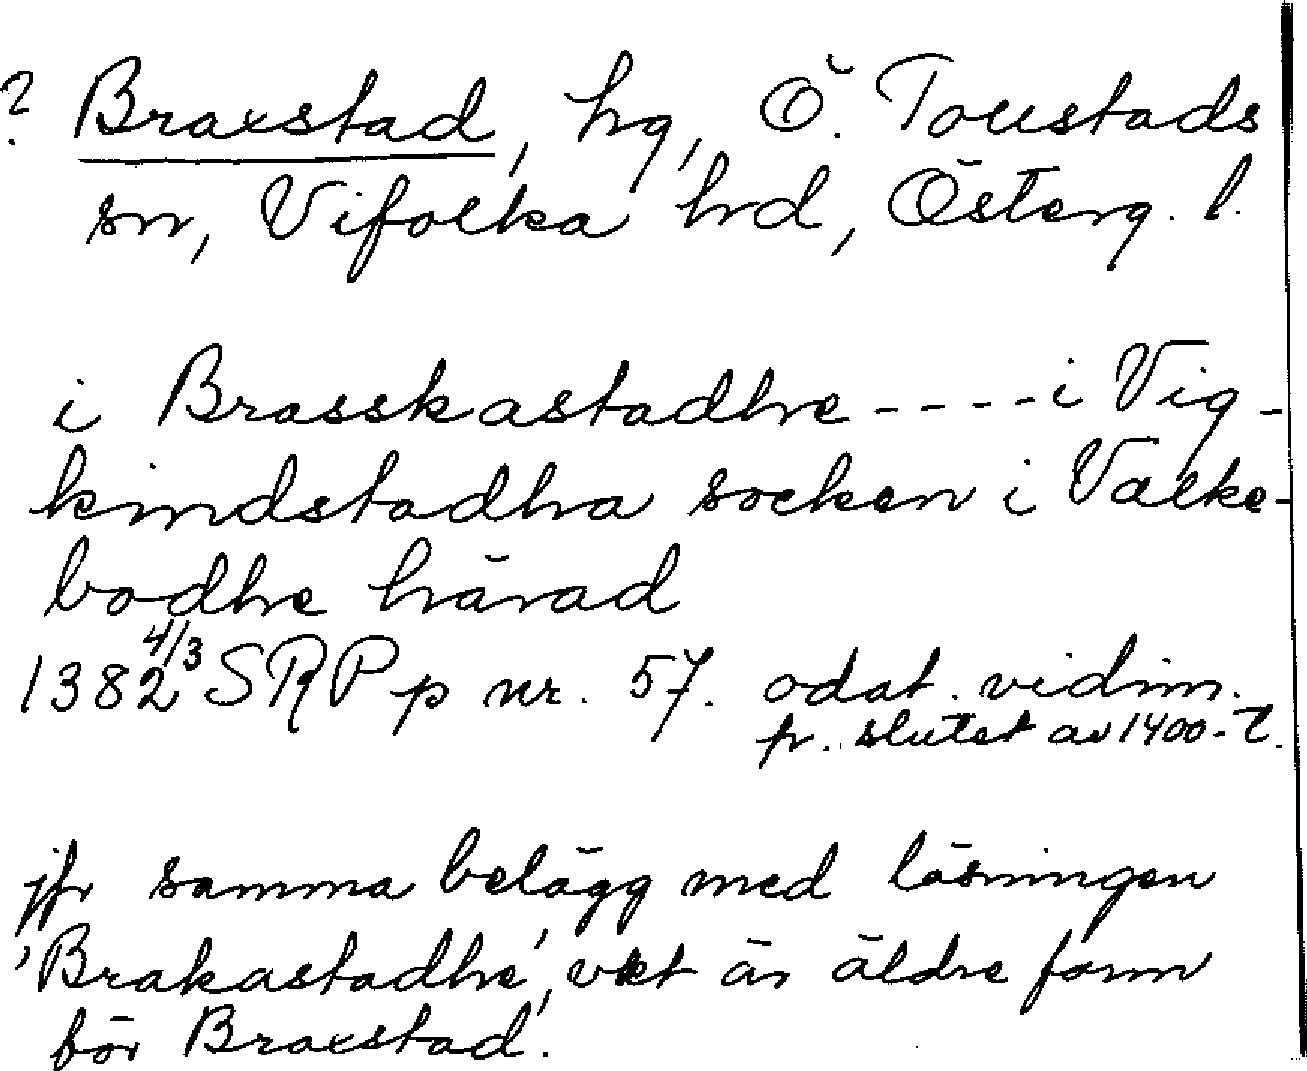 ? Braxstad, hg, Ö. Toustads
sn, Vifolka hrd, Österg. l.
i Brasskastadhe ----- i Vig-
kindstadha socken i Valke-
bodhe härad
1382 4/3 SRP p nr. 57. odat. vidim.
fr. slutet av 1400-t.
jfr samma belägg med läsningen
'Brakastadhe', vket är äldre form
för Braxstad.